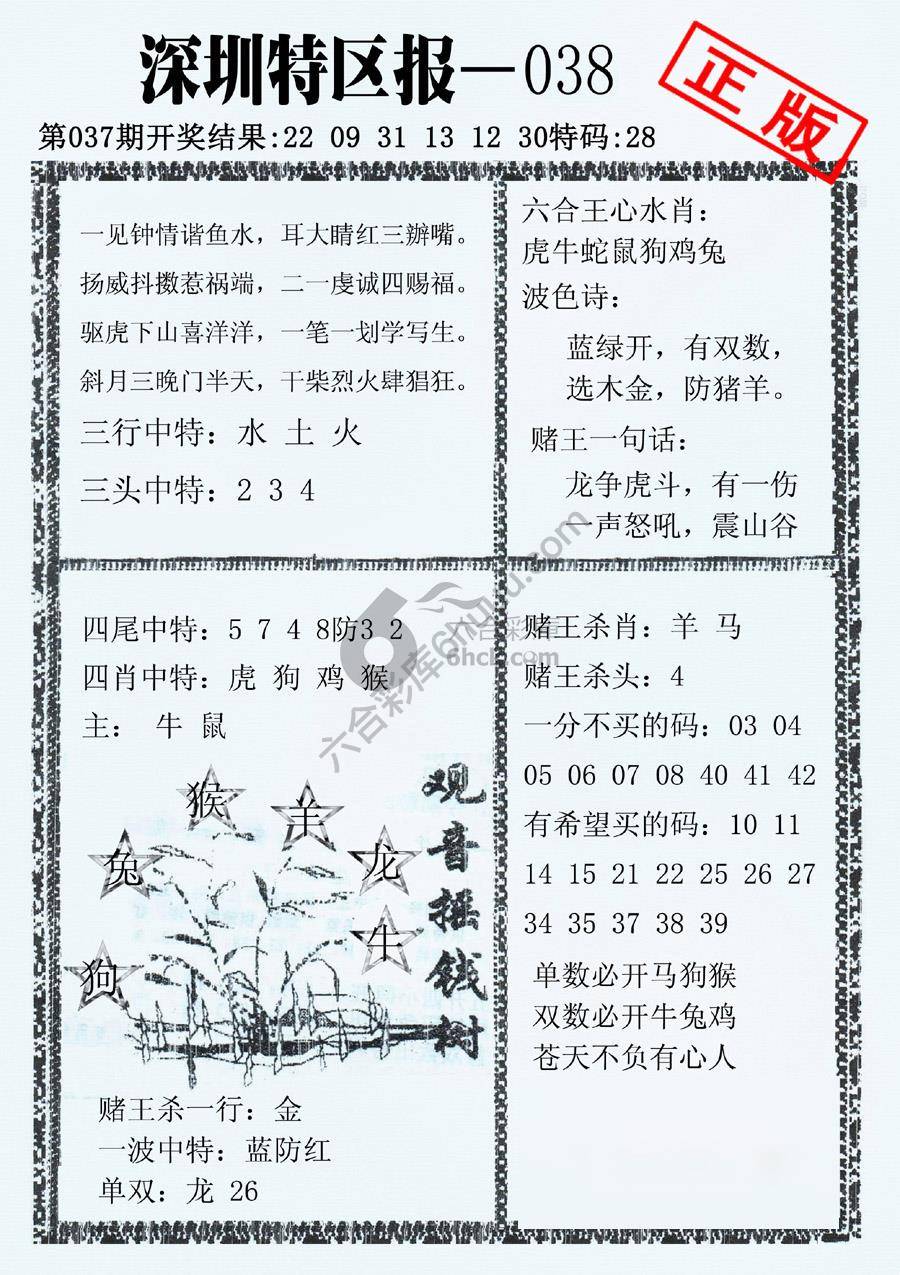 深圳特区报—038
正版
第037期开奖结果:22 09 31 13 12 30特码:28
一见钟情谐鱼水，耳大睛红三瓣嘴。
扬威抖擞惹祸端，二一虔诚四赐福。
驱虎下山喜洋洋，一笔一划学写生。
斜月三晚门半天，干柴烈火肆猖狂。
三行中特：水 土 火
三头中特：2 3 4
六合王心水肖：
虎牛蛇鼠狗鸡兔
波色诗：
蓝绿开，有双数，
选木金，防猪羊。
赌王一句话：
龙争虎斗，有一伤
一声怒吼，震山谷
四尾中特：5 7 4 8防3 2
四肖中特：虎 狗 鸡 猴
主： 牛 鼠
猴
羊
兔
龙
狗
牛
观音摇钱树
赌王杀一行：金
一波中特：蓝防红
单双：龙 26
赌王杀肖：羊 马
赌王杀头：4
一分不买的码：03 04
05 06 07 08 40 41 42
有希望买的码：10 11
14 15 21 22 25 26 27
34 35 37 38 39
单数必开马狗猴
双数必开牛兔鸡
苍天不负有心人
六合彩库